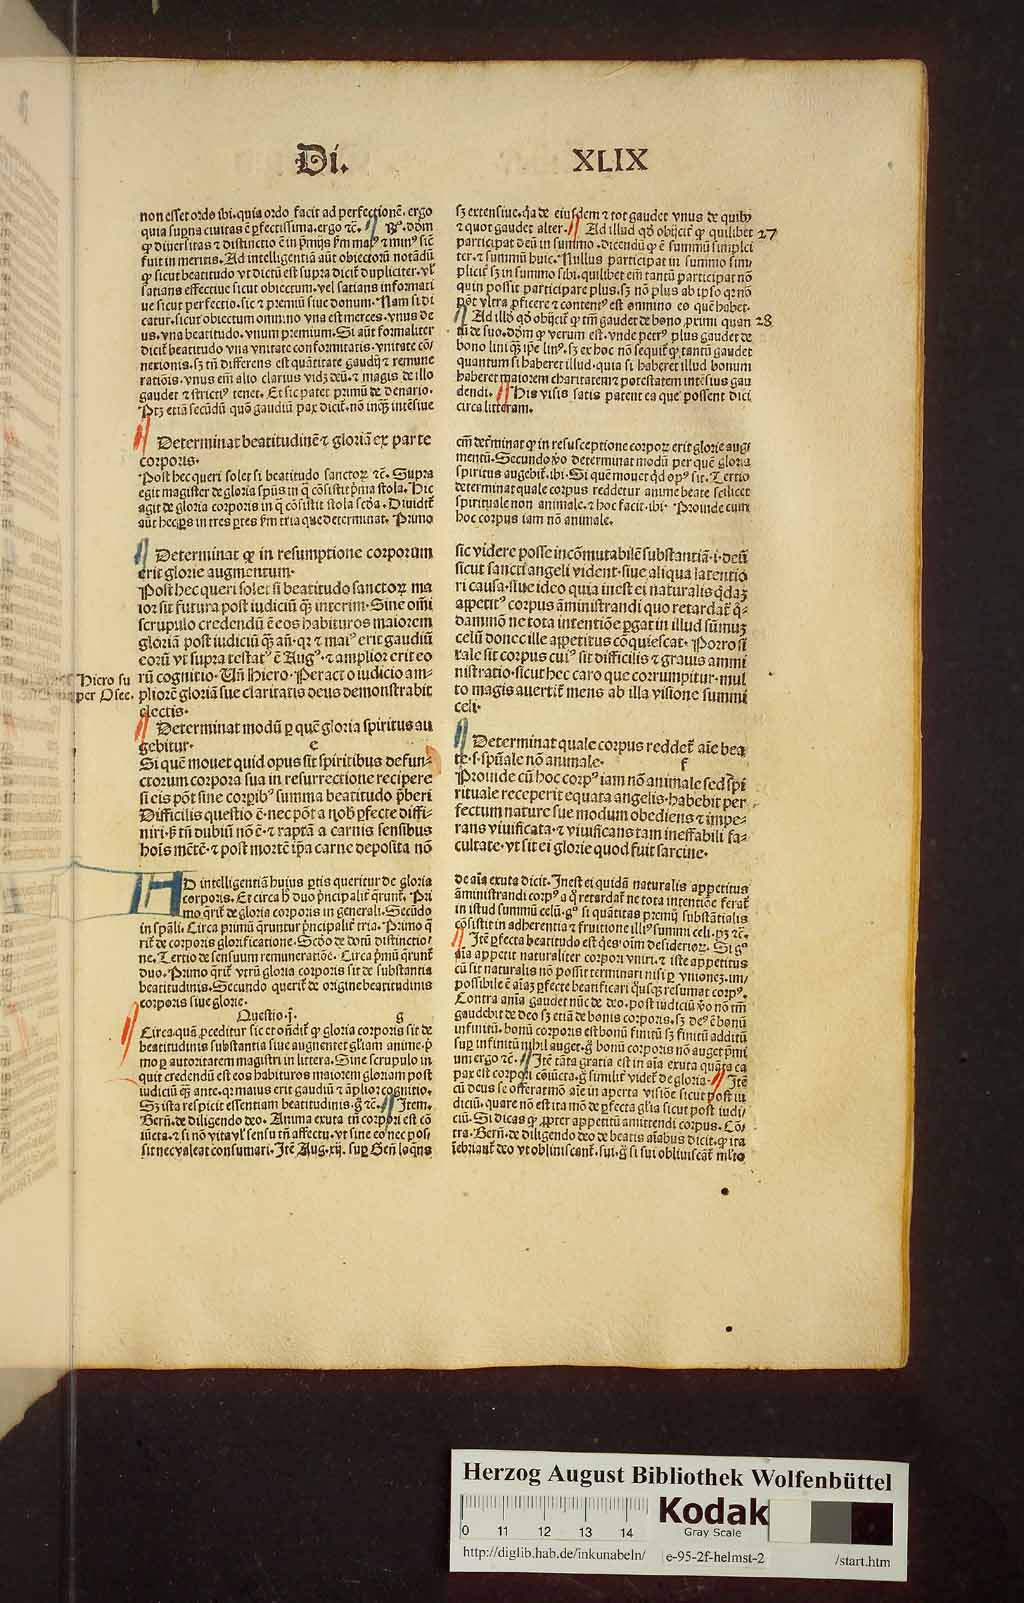 Di. XLIX
non esset ordo ibi. quia ordo facit ad perfectionē. ergo
quia supna ciuitas ē pfectissima. ergo ⁊c. ꝶ. dōm
ꝙ diuersitas ⁊ distinctio ē in pmijs pm maꝰ ⁊ minꝰ sic̄
fuit in meritis. Ad intelligentiā aūt obiectorū notādū
ꝙ sicut beatitudo vt dictū est supra dicit̄ dupliciter. vꝉ
satians effectiue sicut obiectum. vel satians informati
ue sicut perfectio. sic ⁊ premiū siue donum. Nam si di
catur. sicut obiectum omnino vna est merces. vnus de
us. vna beatitudo. vnum premium. Si aūt formaliter
dicit̄ beatitudo vna vnitate conformitatis. vnitate cō/
nexionis. sꝫ tn̄ differens est quātitate gaudij ⁊ remune
rationis. vnus em̄ alio clarius videt deū. ⁊ magis de illo
gaudet ⁊ strictiꝰ tenet. Et sic patet primū de denario.
Ptꝫ etiā secūdū quō gaudiū pax dicit̄. nō inqꝫ intēsiue
Determinat beatitudinē ⁊ gloriā ex parte
corporis.
Post hec queri solet si beatitudo sanctoꝝ ⁊c. Supra
egit magister de gloria spūs in q̄ cōsistit pma stola. Hic
agit de gloria corporis in q̄ cōsistit stola scda. Diuidit̄
aūt hec ps in tres ptes pm tria que determinat. Primo
Determinat ꝙ in resumptione corporum
erit glorie augmentum.
Post hec queri solet si beatitudo sanctoꝝ ma
ior sit futura post iudiciū qꝫ interim. Sine om̄i
scrupulo credendū ē eos habituros maiorem
gloriam post iudiciū qꝫ an̄. qꝛ ⁊ maiꝰ erit gaudiū
eorū vt supra testatꝰ ē Augꝰ. ⁊ amplior erit eo
rū cognitio. Un̄ Hiero. Peracto iudicio am-
pliorē gloriā sue claritatis deus demonstrabit
electis.
Hiero su
per Osee.
Determinat modū p quē gloria spiritus au
gebitur. e
Si quē mouet quid opus sit spiritibus defun-
ctorum corpora sua in resurrectione recipere
si eis pōt sine corpibꝰ summa beatitudo pberi
Difficilis questio ē. nec pōt a nob̄ pfecte diffi-
niri. ꝫ tn̄ dubiū nō ē. ⁊ raptā a carnis sensibus
hois mētē. ⁊ post mortē ipa carne deposita nō
AD intelligentiā huius ptis queritur de gloria
corporis. Et circa ħ duo pncipalit̄ qrunt̄. Pri
mo qrit̄ de gloria corporis in generali. Secūdo
in spāli. Circa primū qruntur pncipalit̄ tria. Primo q̄
rit̄ de corporis glorificatione. Scdo de dotū distinctio/
ne. Tertio de sensuum remuneratiōe. Circa pmū qrunt̄
duo. Primo qrit̄ vtrū gloria corporis sit de substantia
beatitudinis. Secundo querit̄ de origine beatitudinis
corporis siue glorie.
Questio .j. g
Circa. quā pceditur sic et ondit̄ ꝙ gloria corporis sit de
beatitudinis substantia siue augmentet gliam anime. p
mo p autoritatem magistri in littera. Sine scrupulo in
quit credendū est eos habituros maiorem gloriam post
iudiciū qꝫ ante. qꝛ maius erit gaudiū ⁊ āplior cognitio.
Sꝫ ista respicit essentiam beatitudinis. g̊ ⁊c. Item.
Bern̄. de diligendo deo. Anima exuta tn̄ corpori est cō
iūcta. ⁊ si nō vita vꝉ sensu tn̄ affectu. vt sine eo nec pos/
sit nec valeat consumari. Itē Aug. xij. sup Gen̄ loqns
sꝫ extensiue. qa de eiusdem ⁊ tot gaudet vnus de quibꝰ
⁊ quot gaudet alter. Ad illud qd̄ obijcit̄ ꝙ quilibet 27
participat deū in summo. Dicendū ꝙ ē summū simplici
ter. ⁊ summū huic. Nullus participat in summo sim
pliciter sꝫ in summo sibi. quilibet em̄ tantū participat nō
quin possit participare plus. sꝫ nō plus ab ipso qꝛ nō
pōt vltra pficere ⁊ contentꝰ est omnino eo que habet.
Ad illd qd̄ obijcit̄ ꝙ tm̄ gaudet de bono pximi quan 28
tū de suo. dōm ꝙ verum est. vnde petrꝰ plus gaudet de
bono lini qꝫ ipe linꝰ. sꝫ ex hoc nō sequit̄ ꝙ tantū gaudet
quantum si haberet illud. quia si haberet illud bonum
haberet maiorem charitatem ⁊ potestatem intēsius gau
dendi. His visis satis patent ea que possent dici
circa litteram.
em̄ det̄minat ꝙ in resusceptione corpoꝝ erit glorie aug/
mentū. Secundo vo determinat modū per quē gloria
spiritus augebit̄. ibi. Si quē mouet qd opꝰ sit. Tertio
determinat quale corpus reddetur anime beate scilicet
spirituale non animale. ⁊ hoc facit. ibi. Proinde cum
hoc corpus iam nō animale.
sic videre posse incōmutabilē substantiā. i. deū
sicut sancti angeli vident. siue aliqua latentio
ri causa. siue ideo quia inest ei naturalis qdaꝫ
appetitꝰ corpus āministrandi quo retardat̄ q̄-
dammō ne tota intentiōe pgat in illud sūmuꝫ
celū donec ille appetitus cōquiescat. Porro si
tale sit corpus cuiꝰ sit difficilis ⁊ grauis ammi
nistratio. sicut hec caro que corrumpitur. mul
to magis auertit̄ mens ab illa visione summi
celi.
Determinat quale corpus reddet̄ aīe bea
te. s. spūale nō animale. f
Proinde cū hoc corpꝰ iam nō animale sed spi
rituale receperit equata angelis. habebit per
fectum nature sue modum obediens ⁊ impe-
rans viuificata. ⁊ viuificans tam ineffabili fa-
cultate. vt sit ei glorie quod fuit sarcine.
de aīa exuta dicit. Inest ei quidā naturalis appetitus
āministrandi corpꝰ a q̄ retardat̄ ne tota intentiōe ferat̄
in istud summū celū. gꝰ si quātitas premij substātialis
cōsistit in adherentia ⁊ fruitione illiꝰ summi celi. pꝫ ⁊c.
Itē pfecta beatitudo est qes oīm desiderioꝝ. Si gꝰ
aīa appetit naturaliter corpori vniri. ⁊ iste appetitus
cū sit naturalis nō possit terminari nisi p vnionez. im/
possibile ē aīaꝫ pfecte beatificari qusqꝫ resumat corpꝰ.
Contra anīa gaudet nūc de deo. post iudiciū vo nō tm̄
gaudebit de deo sꝫ etiā de bonis corporis. sꝫ deꝰ ē bonū
infinitū. bonū corporis est bonū finitū sꝫ finitū additū
sup infinitū nihil auget. g̊ bonū corporis nō auget pmi
um ergo ⁊c. Itē tāta gratia est in aīa exuta quāta ca
pax est corpori cōiūcta. g̊ similit̄ videt̄ de gloria. Itē
cū deus se offerat mō aīe in aperta visiōe sicut post iu
diciū. quare nō est ita mō de pfecta glia sicut post iudi/
ciū. Si dicas ꝙ ppter appetitū amittendi corpus. Cō/
tra. Bern̄. de diligendo deo de beatis aīabus dicit. ꝙ ita
īebriant̄ deo vt obliniscant̄. sui. g̊ si sui obliuiscāt̄ mlto
Herzog August Bibliothek Wolfenbüttel
Kodak
Gray Scale
0 11 12 13 14
http://diglib.hab.de/inkunabeln/ e-95-2f-helmst-2 /start.htm